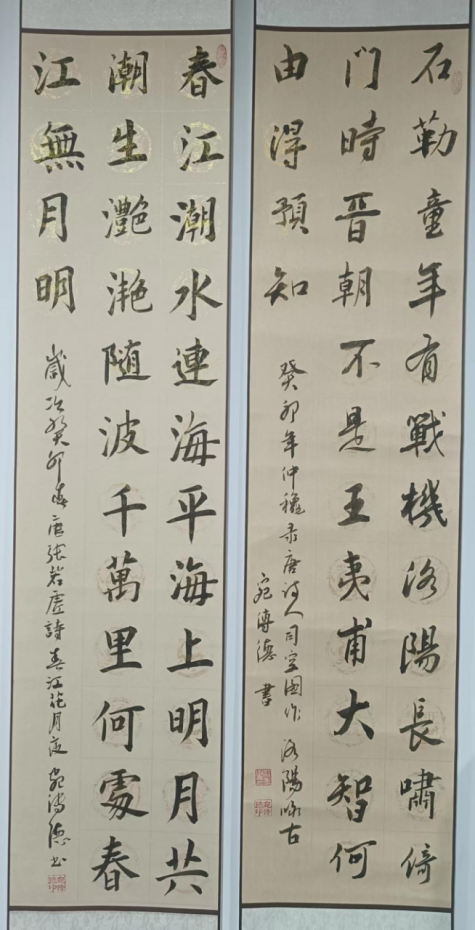 石勒童年有戰機洛陽長嘯倚
門時晋朝不是王夷甫大智何
由得預知
癸卯年仲穐录唐诗人司空图作 洛陽咏古
宛溥德書
春江潮水連海平海上明月共
潮生灔灔随波千萬里何處春
江無月明
歲次癸卯唐张若虚詩春江花月夜宛溥德书